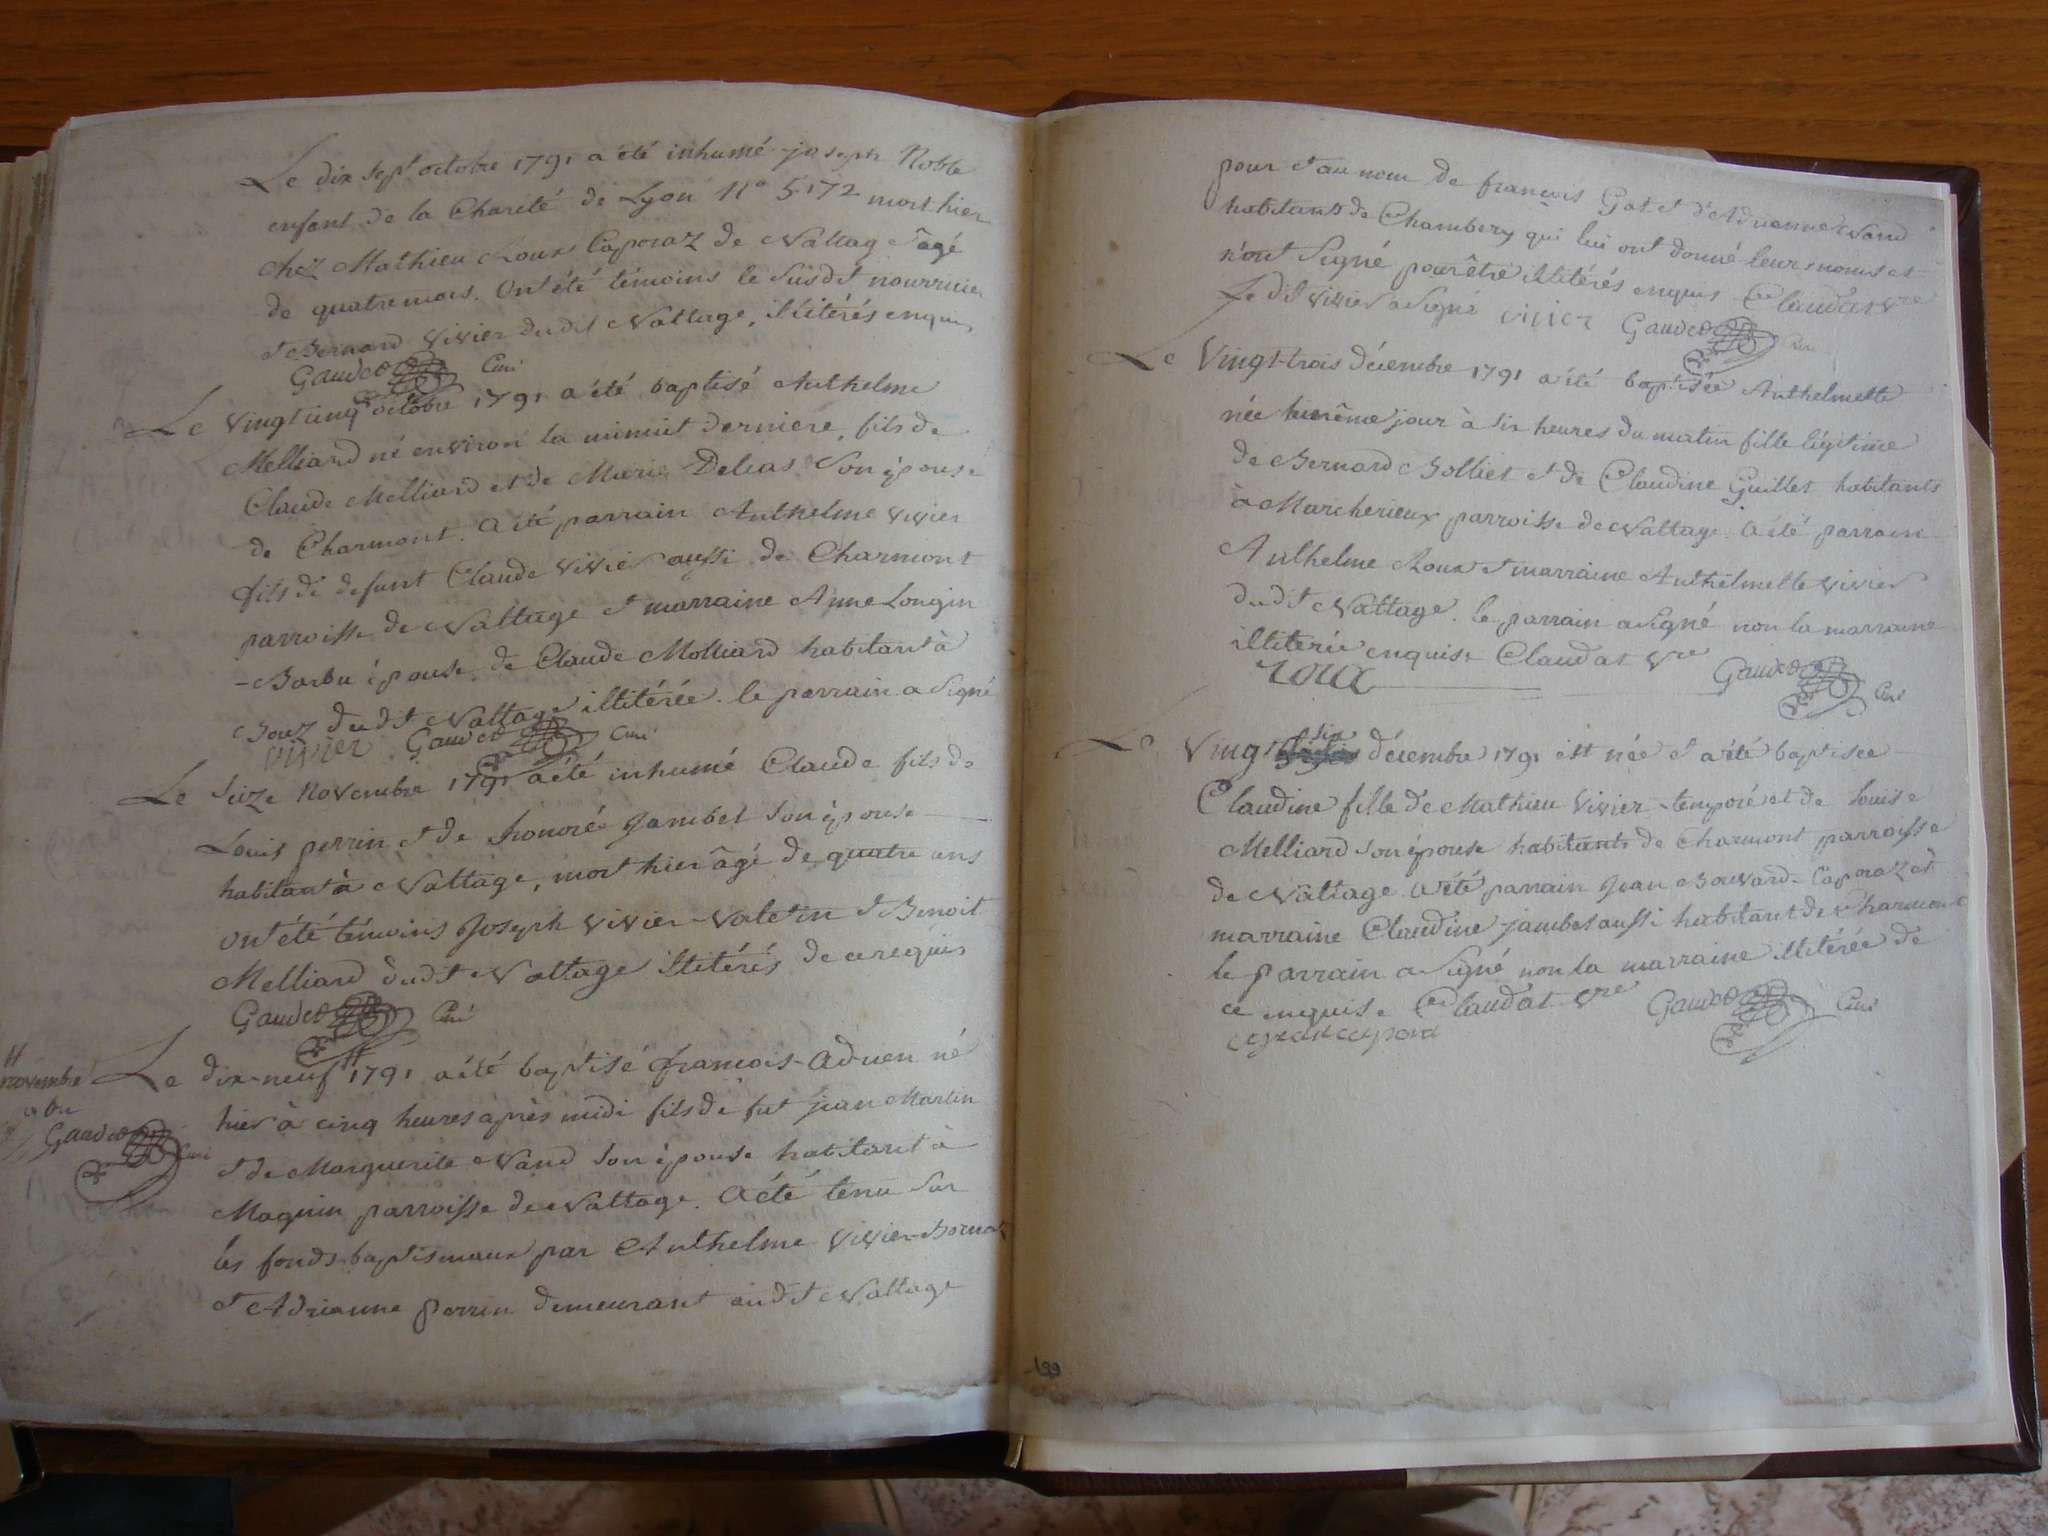 Le dix sept octobre 1791 a été inhumé joseph Noble
enfant de la Charité de Lyon N° 5172 mort hier
chez Mathieu Roux Caporaz de Nattage âgé
de quatre mois. Ont été témoins le susdit nourricier
et Bernard Vivier dudit Nattage, illitérés enquis
Gaudet Curé
Le vingt cinq octobre 1791 a été baptisé Anthelme
Melliard né environ la minuit derniere, fils de
Claude Melliard et de Marie son épouse
de Charmont. A été parrain Anthelme vivier
fils de defunt Claude Vivier aussi de Charmont
parroisse de Nattage et marraine Anne Longin
-Barbu épouse de Claude Molliard habitant à
dudit Nattage illitérée. le parrain a signé
vivier Gaudet Curé
Le seize Novembre 1791 a été inhumé Claude fils de
Louis perrin et de honoré Jambet son épouse
habitant à Nattage, mort hier âgé de quatre ans
ont été témoins Joseph Vivier-Valetin et Benoit
Melliard dudit Nattage illitérés de ce requis
Gaudet Curé
novembre
Gaudet Curé
Le dix-neuf 1791 a été baptisé francois-Adrien né
hier à cinq heures après midi fils de fut jean Martin
et de Marguerite Nand son épouse habitant à
Maguin parroisse de Nattage. A été tenu sur
les fonds baptismaux par Anthelme Vivier-Bornaz
et Adrianne perrin demeurant audit Nattage
pour et au nom de francois Got et d'Adrienne Nand
habitants de Chambery qui lui ont donné leurs noms et
n'ont signé pour être illitérés enquis Claudat vre
Le dit vivier a signé vivier Gaudet Curé
Le Vingt-trois décembre 1791 a été baptisée Anthelmette
née même jour à six heures du matin fille légitime
de Bernard Bolliet et de Claudine Guillet habitants
à Marcherieux parroisse de Nattage. A été parrain
Anthelme Roux et marraine Anthelmette vivier
dudit Nattage. le parrain a signé non la marraine
illitérée enquise Claudat vre
roux Gaudet Curé
six
Le Vingt décembre 1791 est née et a été baptisée
Claudine fille de Mathieu Vivier-temporé et de louise
Melliard son épouse habitants de Charmont parroisse
de Nattage. a été parrain Jean Bouvard-Caporaz et
marraine Claudine jambet aussi habitant de Charmont
le parrain a signé non la marraine illitérée de
ce enquise Claudat vre Gaudet Curé